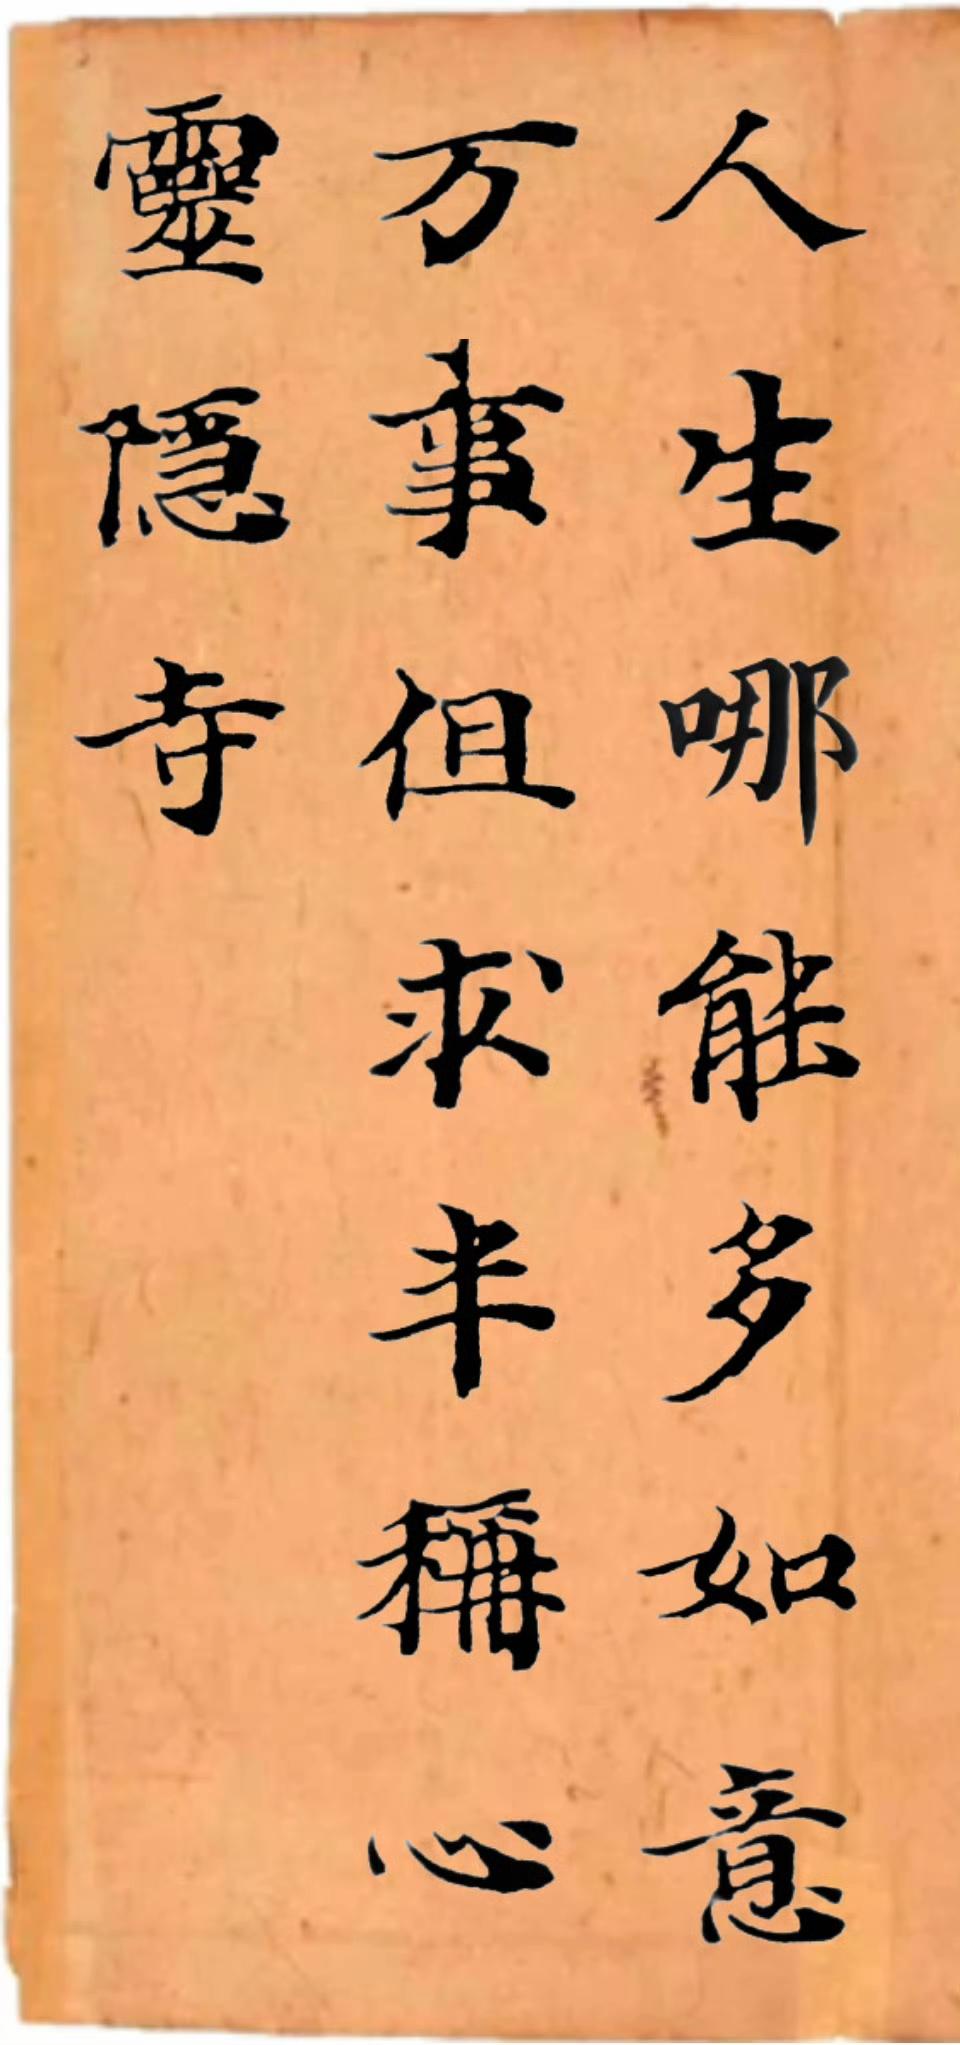 人生哪能多如意
万事但求半稱心
靈隱寺